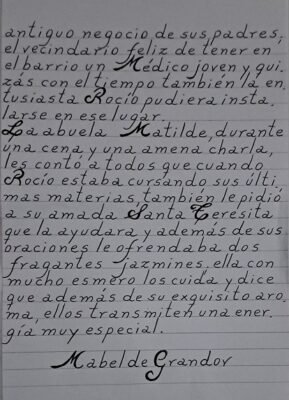 antiguo negocio de sus padres,
el vecindario feliz de tener en
el barrio un Médico joven y qui_
zás con el tiempo también la en_
tusiasta Rocío pudiera insta_
larse en ese lugar.
La abuela Matilde, durante
una cena y una amena charla,
les contó a todos que cuando
Rocío estaba cursando sus últi_
mas materias, también le pidió
a su amada Santa Teresita
que la ayudara y además de sus
oraciones le ofrendaba dos
fragantes jazmines, ella con
mucho esmero los cuida y dice
que además de su exquisito aro_
ma, ellos transmiten una ener_
gía muy especial.
Mabel de Grandov